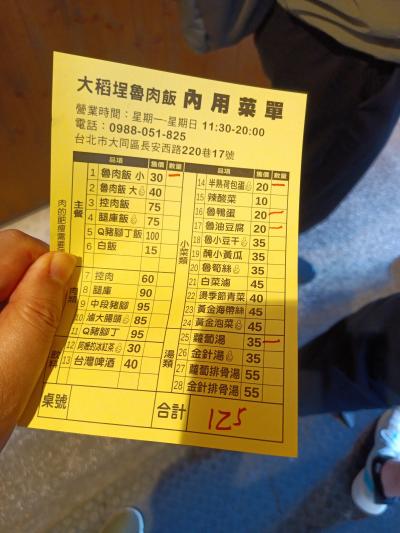 大稻埕魯肉飯 內用菜單
營業時間：星期一-星期日 11:30-20:00
電話：0988-051-825
台北市大同區長安西路220巷17號
品項 售價 數量
主餐
1 魯肉飯 小 30
2 魯肉飯 大 40
3 控肉飯 75
4 腿庫飯 75
5 Q豬腳丁飯 100
6 白飯 15
肉類
7 控肉 60
8 腿庫 90
9 中段豬腳 95
10 滷大腸頭 85
11 Q豬腳丁 95
飲料
12 阿嬤的冰紅茶 30
13 台灣啤酒 40
品項 售價 數量
小菜類
14 半熟荷包蛋 20
15 辣酸菜 10
16 魯鴨蛋 20
17 魯油豆腐 20
18 魯小豆干 35
19 醃小黃瓜 35
20 魯筍絲 35
21 白菜滷 45
22 燙季節青菜 40
23 黃金海帶絲 45
24 黃金泡菜 45
湯類
25 蘿蔔湯 35
26 金針湯 35
27 蘿蔔排骨湯 55
28 金針排骨湯 55
桌號
合計 125